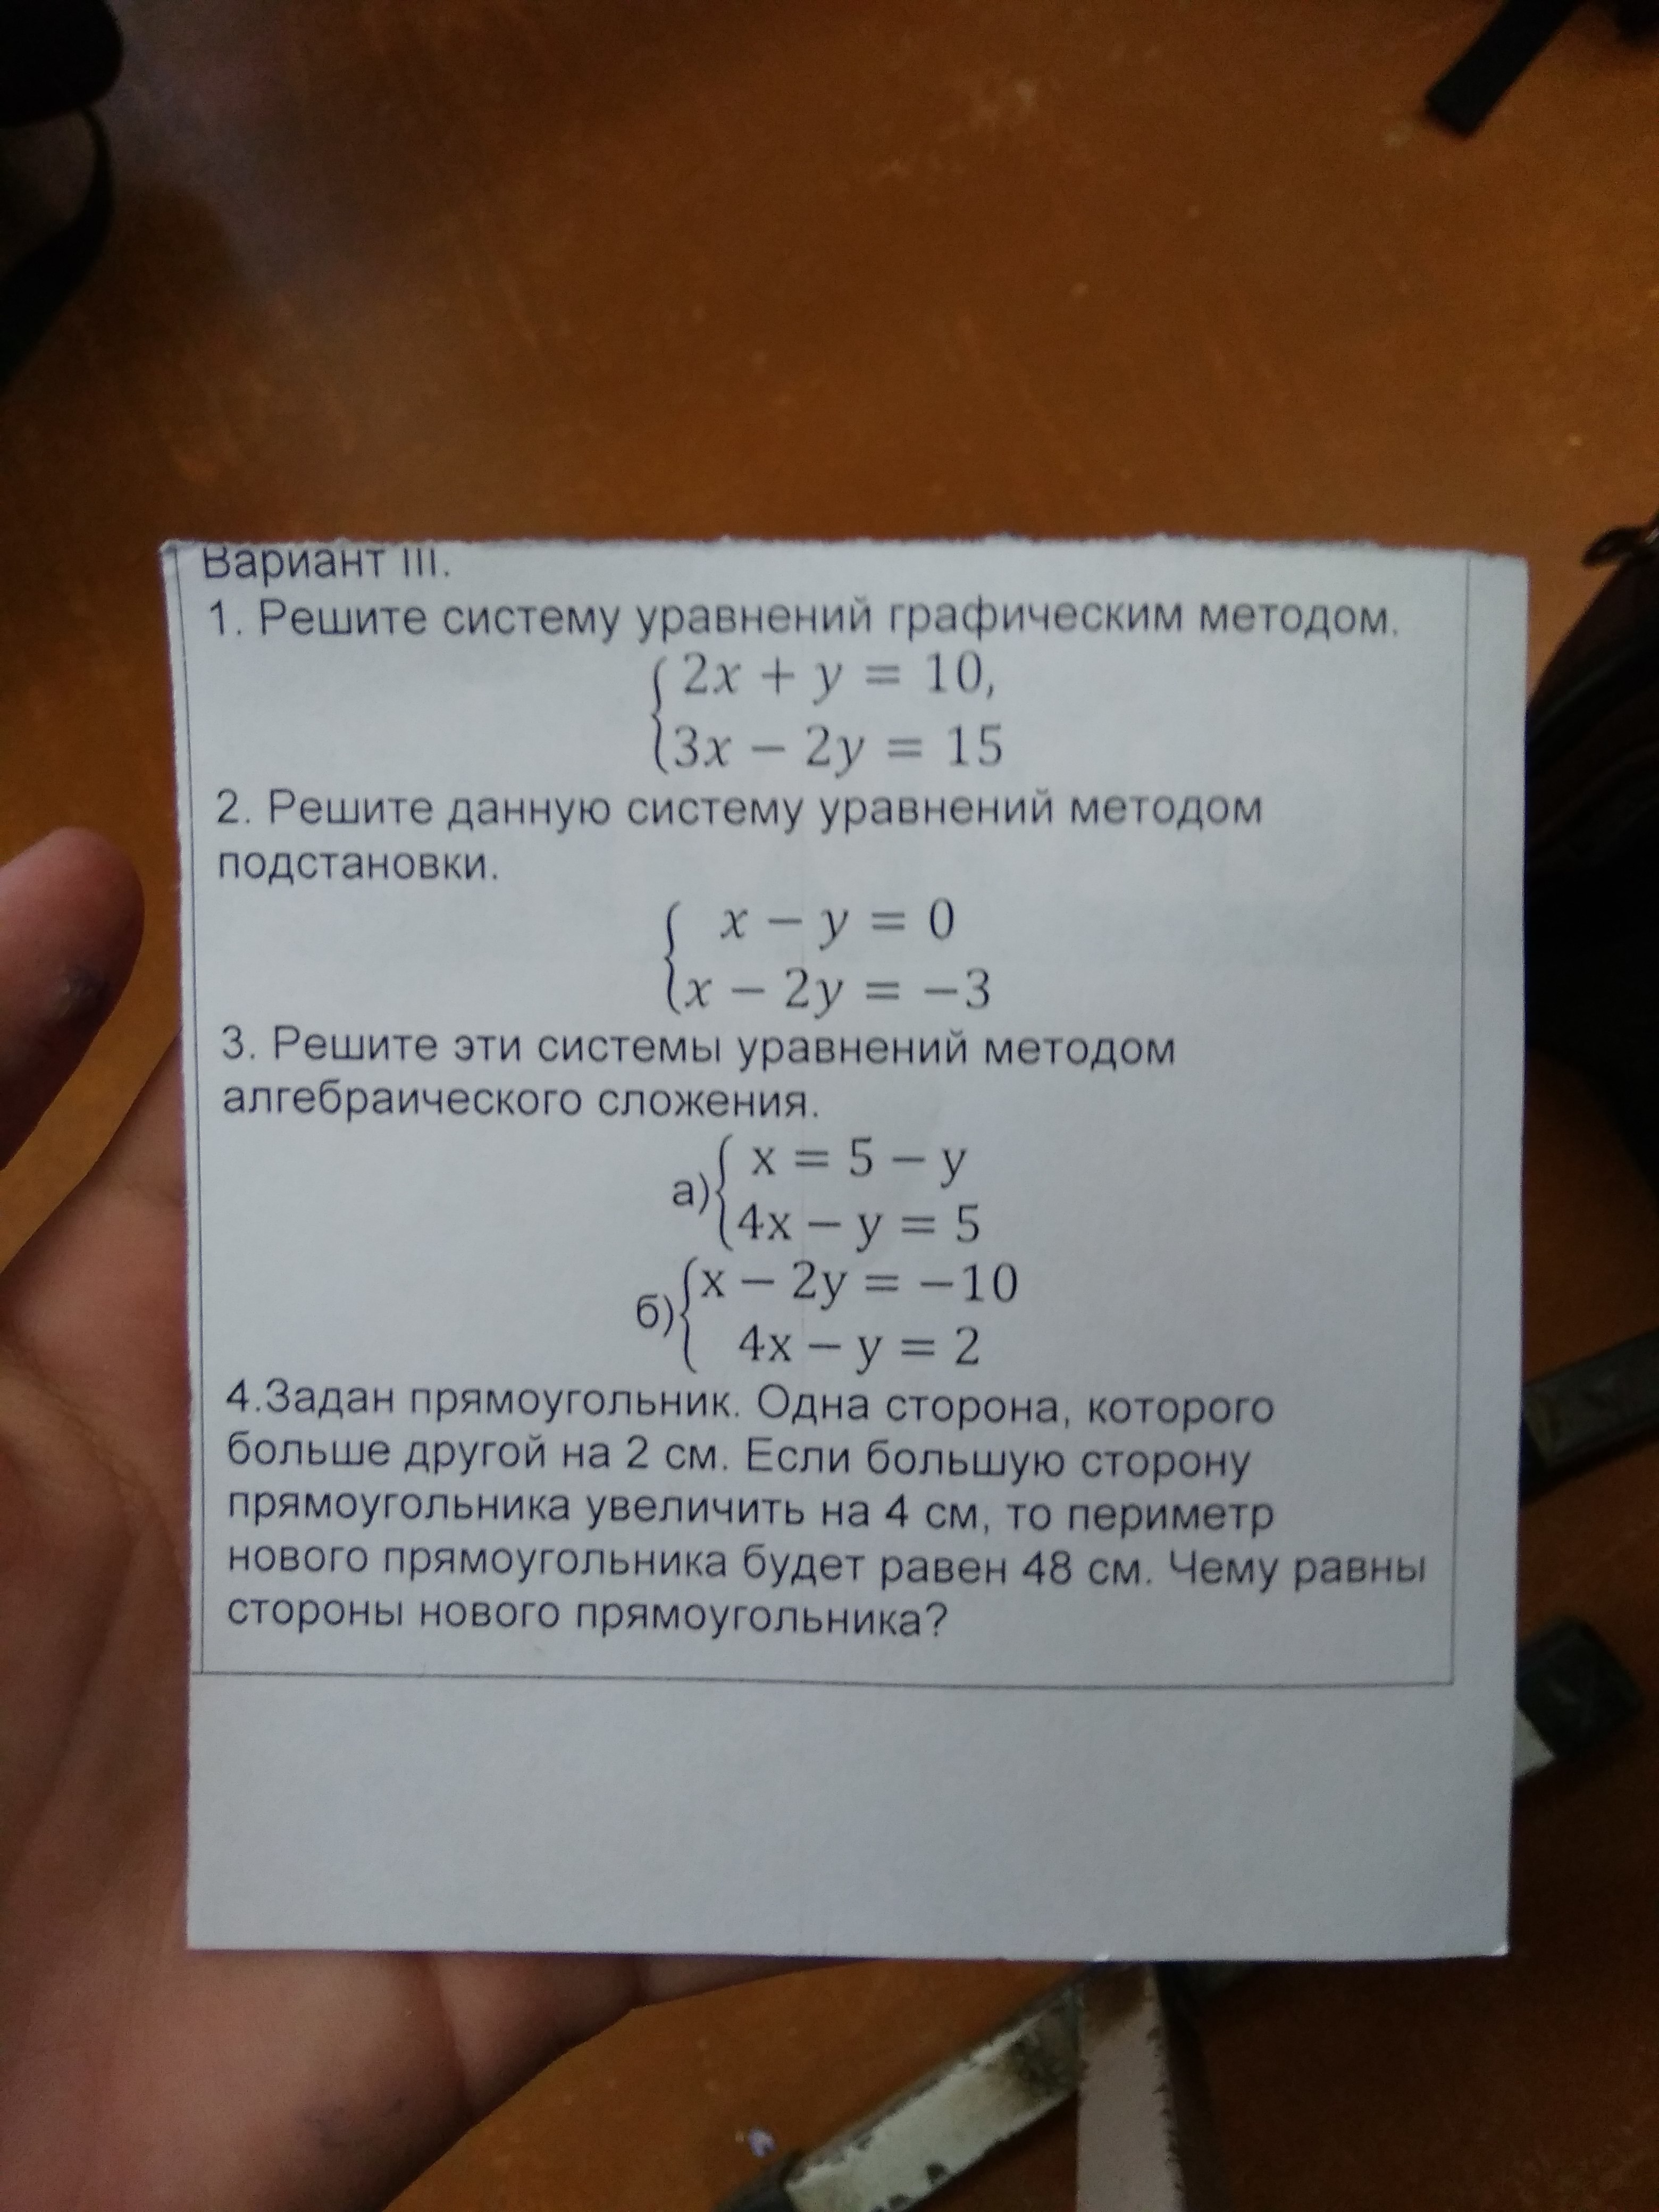 Вариант III.
1. Решите систему уравнений графическим методом.
2x + y = 10,
3x − 2y = 15
2. Решите данную систему уравнений методом
подстановки.
x − y = 0
x − 2y = −3
3. Решите эти системы уравнений методом
алгебраического сложения.
а) x = 5 − y
4x − y = 5
б) x − 2y = −10
4x − y = 2
4.Задан прямоугольник. Одна сторона, которого
больше другой на 2 см. Если большую сторону
прямоугольника увеличить на 4 см, то периметр
нового прямоугольника будет равен 48 см. Чему равны
стороны нового прямоугольника?